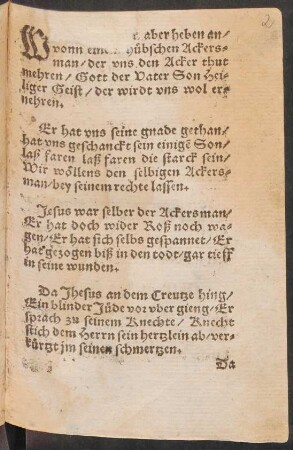 2
W aber heben an/
vonn hübschen Ackers-
man/der vns den Acker thut
mehren/Gott der Vater Son Hei-
liger Geist/der wirdt vns wol er-
nehren.
Er hat vns seine gnade gethan/
hat vns geschanckt sein einigẽ Son/
laß faren laß faren die starck sein/
Wir wöllens den selbigen Ackers-
man/bey seinem rechte lassen.
Jesus war selber der Ackersman/
Er hat doch wider Roß noch wa-
gen/Er hat sich selbs gespannet/Er
hat gezogen biß in den todt/gar tieff
in seine wunden.
Da Jhesus an dem Creutze hing/
Ein blinder Jüde vor vber gieng/Er
sprach zu seinem Knechte/Knecht
stich dem Herrn sein hertzlein ab/ver-
kürtzt jm seinen schmertzen.
Da